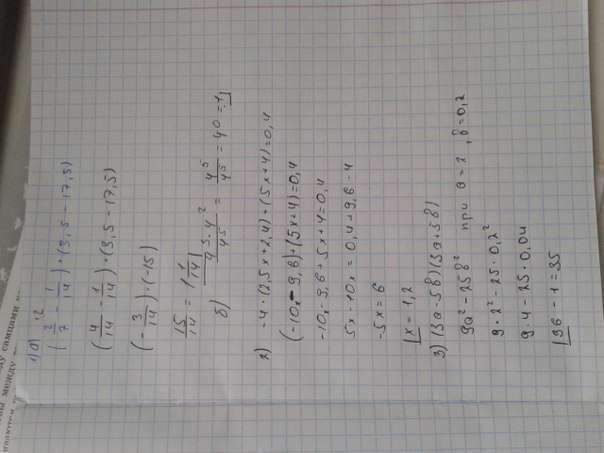 1) а) ·2
(2/7 - 1/14) : (3,5 - 17,5)
(4/14 - 1/14) : (3,5 - 17,5)
(- 3/14) · (-15)
15/14 = 1 1/14
б) 4^3 · 4^2 / 4^5 = 4^5 / 4^5 = 4^0 = 1
2) -4 · (2,5x + 2,4) + (5x + 4) = 0,4
(-10x - 9,6) + (5x + 4) = 0,4
-10x - 9,6 + 5x + 4 = 0,4
5x - 10x = 0,4 + 9,6 - 4
-5x = 6
x = 1,2
3) (3а - 5в)(3а + 5в)
9а² - 25в² при а = 2, в = 0,2
9 · 2² - 25 · 0,2²
9 · 4 - 25 · 0,04
36 - 1 = 35